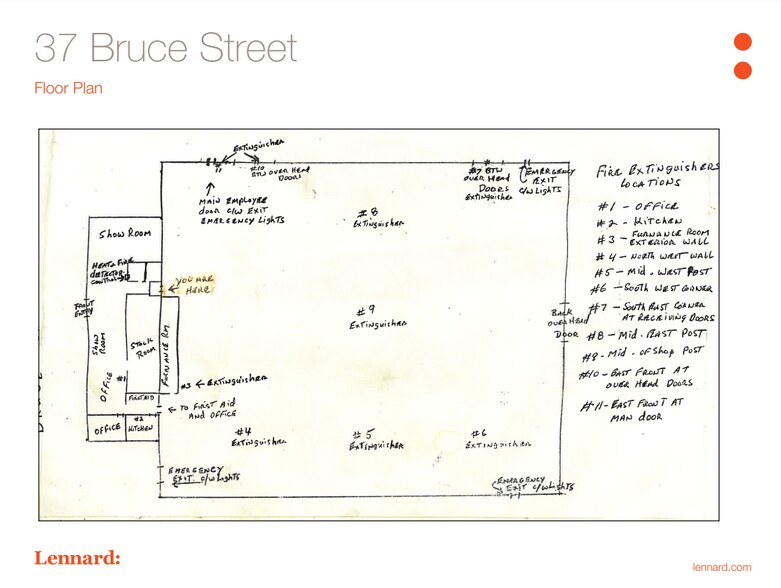 37 Bruce Street
Floor Plan
Extinguisher
#10
BTW OVER HEAD
DOORS
#7 BTW
OVER HEAD
DOORS
Extinguisher
EMERGENCY
EXIT
C/W LIGHTS
MAIN EMPLOYEE
door C/W EXIT
EMERGENCY LIGHTS
#8
Extinguisher
SHOW ROOM
HEAT & FIRE
detector
CONTROL
YOU ARE
HERE
FRONT
ENTRY
SHOW
ROOM
STOCK
ROOM
FURNANCE RM.
#9
Extinguisher
BACK
OVERHEAD
DOOR
OFFICE
#1
FIRST AID
#3 Extinguisher
TO FIRST AID
AND OFFICE
OFFICE
#2
KITCHEN
#4
Extinguisher
#5
Extinguisher
#6
Extinguisher
EMERGENCY
EXIT C/W LIGHTS
EMERGENCY
EXIT C/W LIGHTS
FIRE EXTINGUISHERS
LOCATIONS
#1 - OFFICE
#2 - KITCHEN
#3 - FURNANCE ROOM
EXTERIOR WALL
#4 - NORTH WEST WALL
#5 - MID. WEST POST
#6 - SOUTH WEST CORNER
#7 - SOUTH EAST CORNER
AT RECEIVING DOORS
#8 - MID. EAST POST
#9 - MID. OF SHOP POST
#10 - EAST FRONT AT
OVER HEAD DOORS
#11 - EAST FRONT AT
MAN DOOR
Lennard:
lennard.com